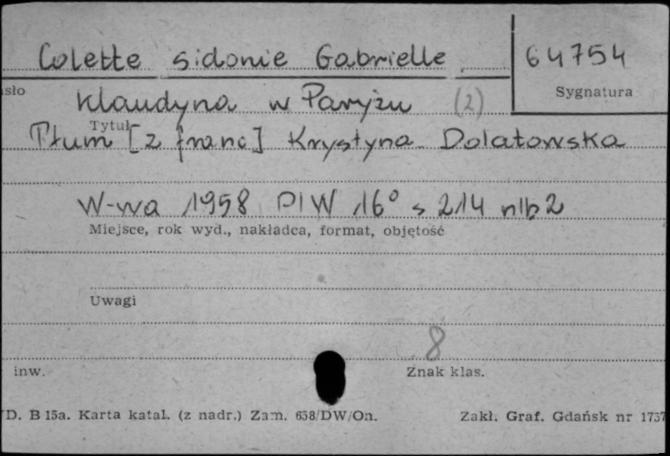 Colette Sidonie Gabrielle
64754
Sygnatura
Klaudyna w Paryżu (2)
Tytuł
Tłum [z franc] Krystyna Dolatowska
W-wa 1958 PIW 16° s 214 nlb 2
Miejsce, rok wyd., nakładca, format, objętość
Uwagi
8
inw.
Znak klas.
D. B 15a. Karta katal. (z nadr.) Zam. 638/DW/On.
Zakł. Graf. Gdańsk nr 1737